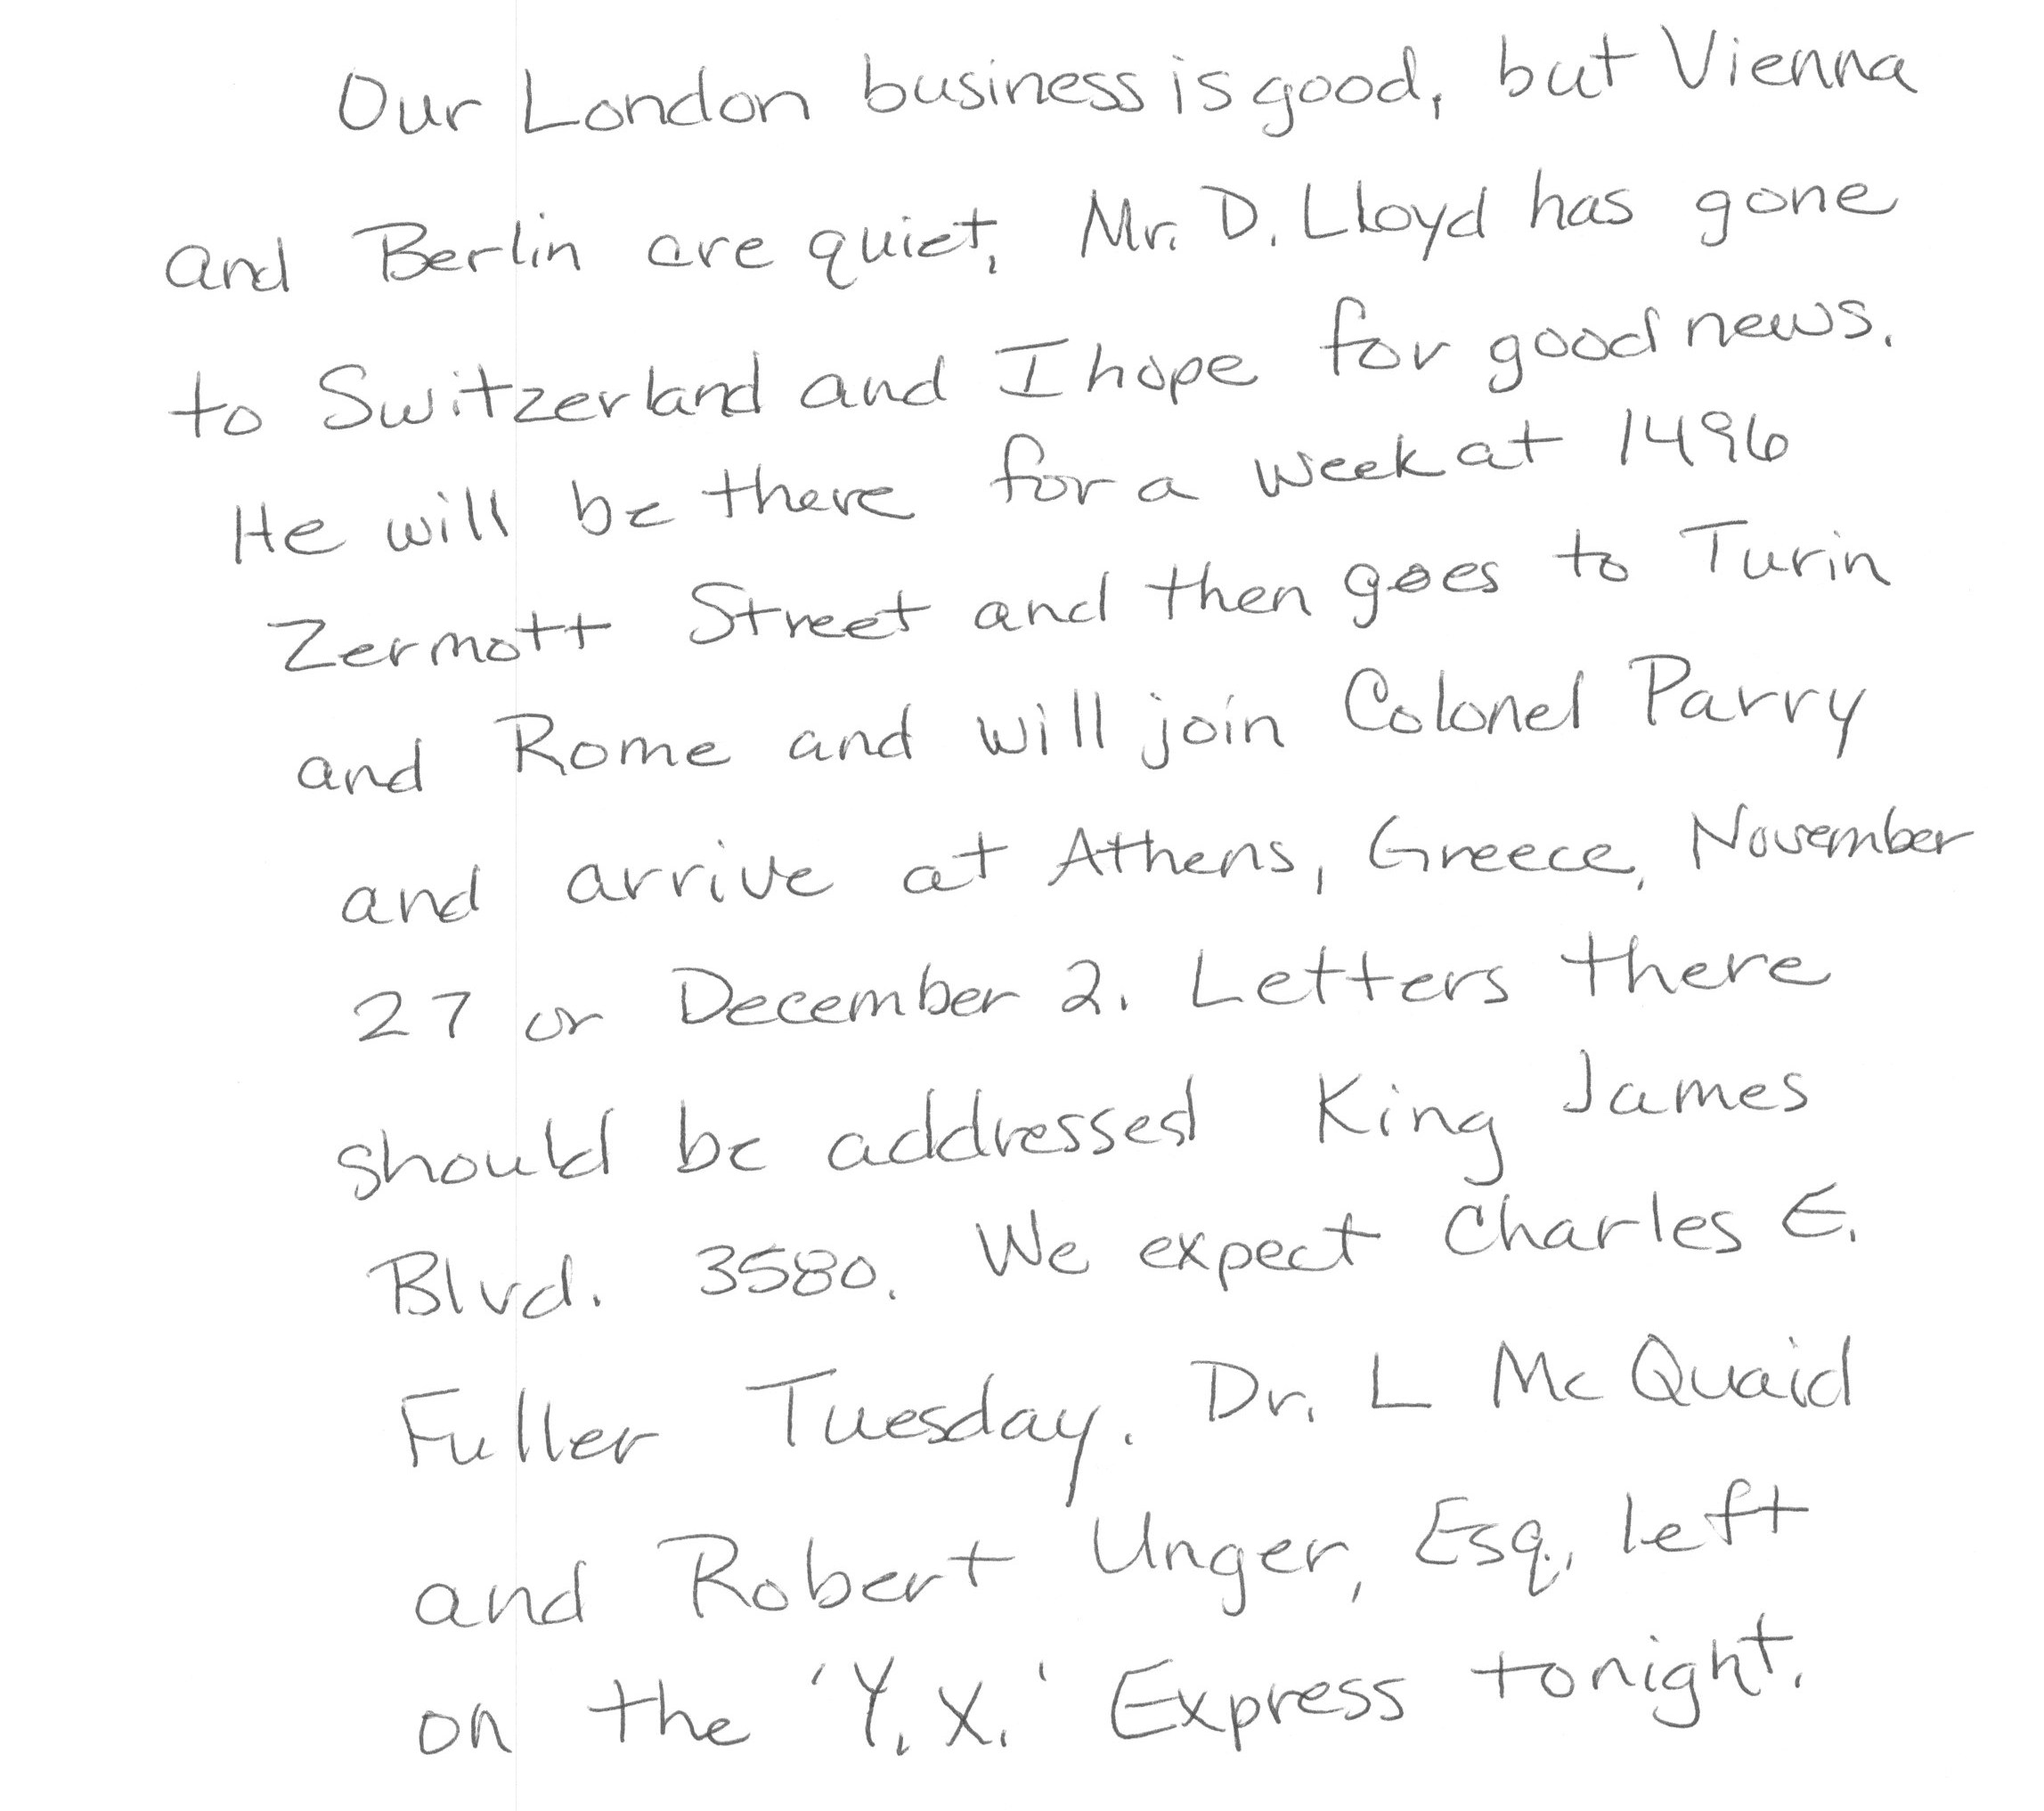 Our London business is good, but Vienna
and Berlin are quiet. Mr. D. Lloyd has gone
to Switzerland and I hope for good news.
He will be there for a week at 1496
Zermott Street and then goes to Turin
and Rome and will join Colonel Parry
and arrive at Athens, Greece, November
27 or December 2. Letters there
should be addressed King James
Blvd. 3580. We expect Charles E.
Fuller Tuesday. Dr. L McQuaid
and Robert Unger, Esq., left
on the 'Y.X.' Express tonight.